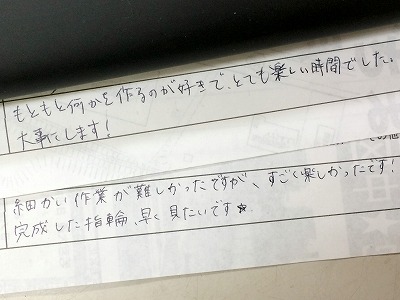 もともと何かを作るのが好きで、とても楽しい時間でした。
大事にします！
細かい作業が難しかったですが、すごく楽しかったです！
完成した指輪、早く見たいです★